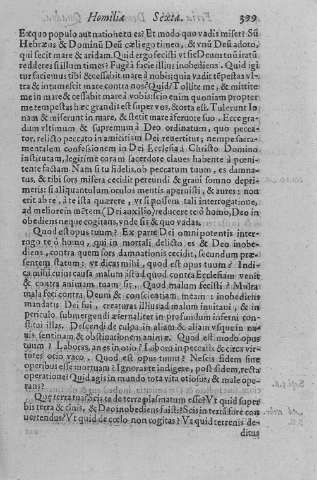 Homiliæ Sexta. 399
Ex quo populo aut natione tu es? Et modo quo vadis miser? Sū
Hebræus & Dominū Deū cæli ego timeo, & vnū Deū adoro,
qui fecit mare & aridam. Quid ergo fecisti vt sic Deum tuū iratū
redderes & illum times? Fugi à facie illius inobediens. Quid igi
tur faciemus tibi & cessabit mare à nobis; quia vadit tēpestas vl-
tra & intumescit mare contra nos? Quid? Tollite me, & mittite
me in mare & cessabit mare à vobis: scio enim quoniam propter
me tempestas hæc grandis est super vos, & orta est. Tulerunt Io-
nam & miserunt in mare, & stetit mare à feruore suo. Ecce gra-
dum vltimum & supremum à Deo ordinatum, quo pecca-
tor, relicto peccato in amicitiam Dei reuertitur; nempe sacra-
mentalem confessionem in Dei Ecclesia à Christo Domino
institutam, legitime coram sacerdote claues habente à pœni-
tente factam. Nam si tu fidelis, ob peccatum tuum, es damna-
tus, & tibi sors misera cecidit pereundi, & graui somno depri-
meris: si aliquantulum oculos mentis aperuisti, & aures: non
erit abs re, à quærete à te, vt si possem tali interrogatione,
ad meliorem mētem (Dei auxilio) reducere te ô homo, Deo in
obediens neque cogitans, vnde sis & quo vadas.
Quod est opus tuum? Ex parte Dei omnipotentis inter-
rogo te ô homo, qui in mortali delicto es & Deo inobe-
diens, contra quem sors damnationis cecidit, secundum præ-
sentem statum; vt dicas mihi, quod est opus tuum? Indi-
ca mihi cuius causa malum istud quod contra Ecclesiam venit
& contra animam tuam sit. Quod malum fecisti? Multa
mala feci contra Deum & conscientiam meam: inobediens
mandatis Dei fui, creaturas illius ad malum inuitaui, & in
periculo submergendi æternaliter in profundum inferni con-
stitui illas. Descendi de culpa in aliam & aliam vsque in nu-
tuum? Laboras, an es in otio? Labora in peccatis & circa vir-
tutes otio vaco. Quod est opus tuum? Nescis fidem sine
operibus esse mortuam? Ignoras te indigere, post fidem, recta
operatione? Quid agis in mundo tota vita otiosus, & male ope-
rans?
Quæ terra tua? Scis te de terra plasmatum esse? Vt quid super
bis terra & cinis, & Deo inobediens fuisti? Scis in terrā fore con
uertendus? Vt quid de cœlo non cogitas? Vt quid terrenis de-
ditus